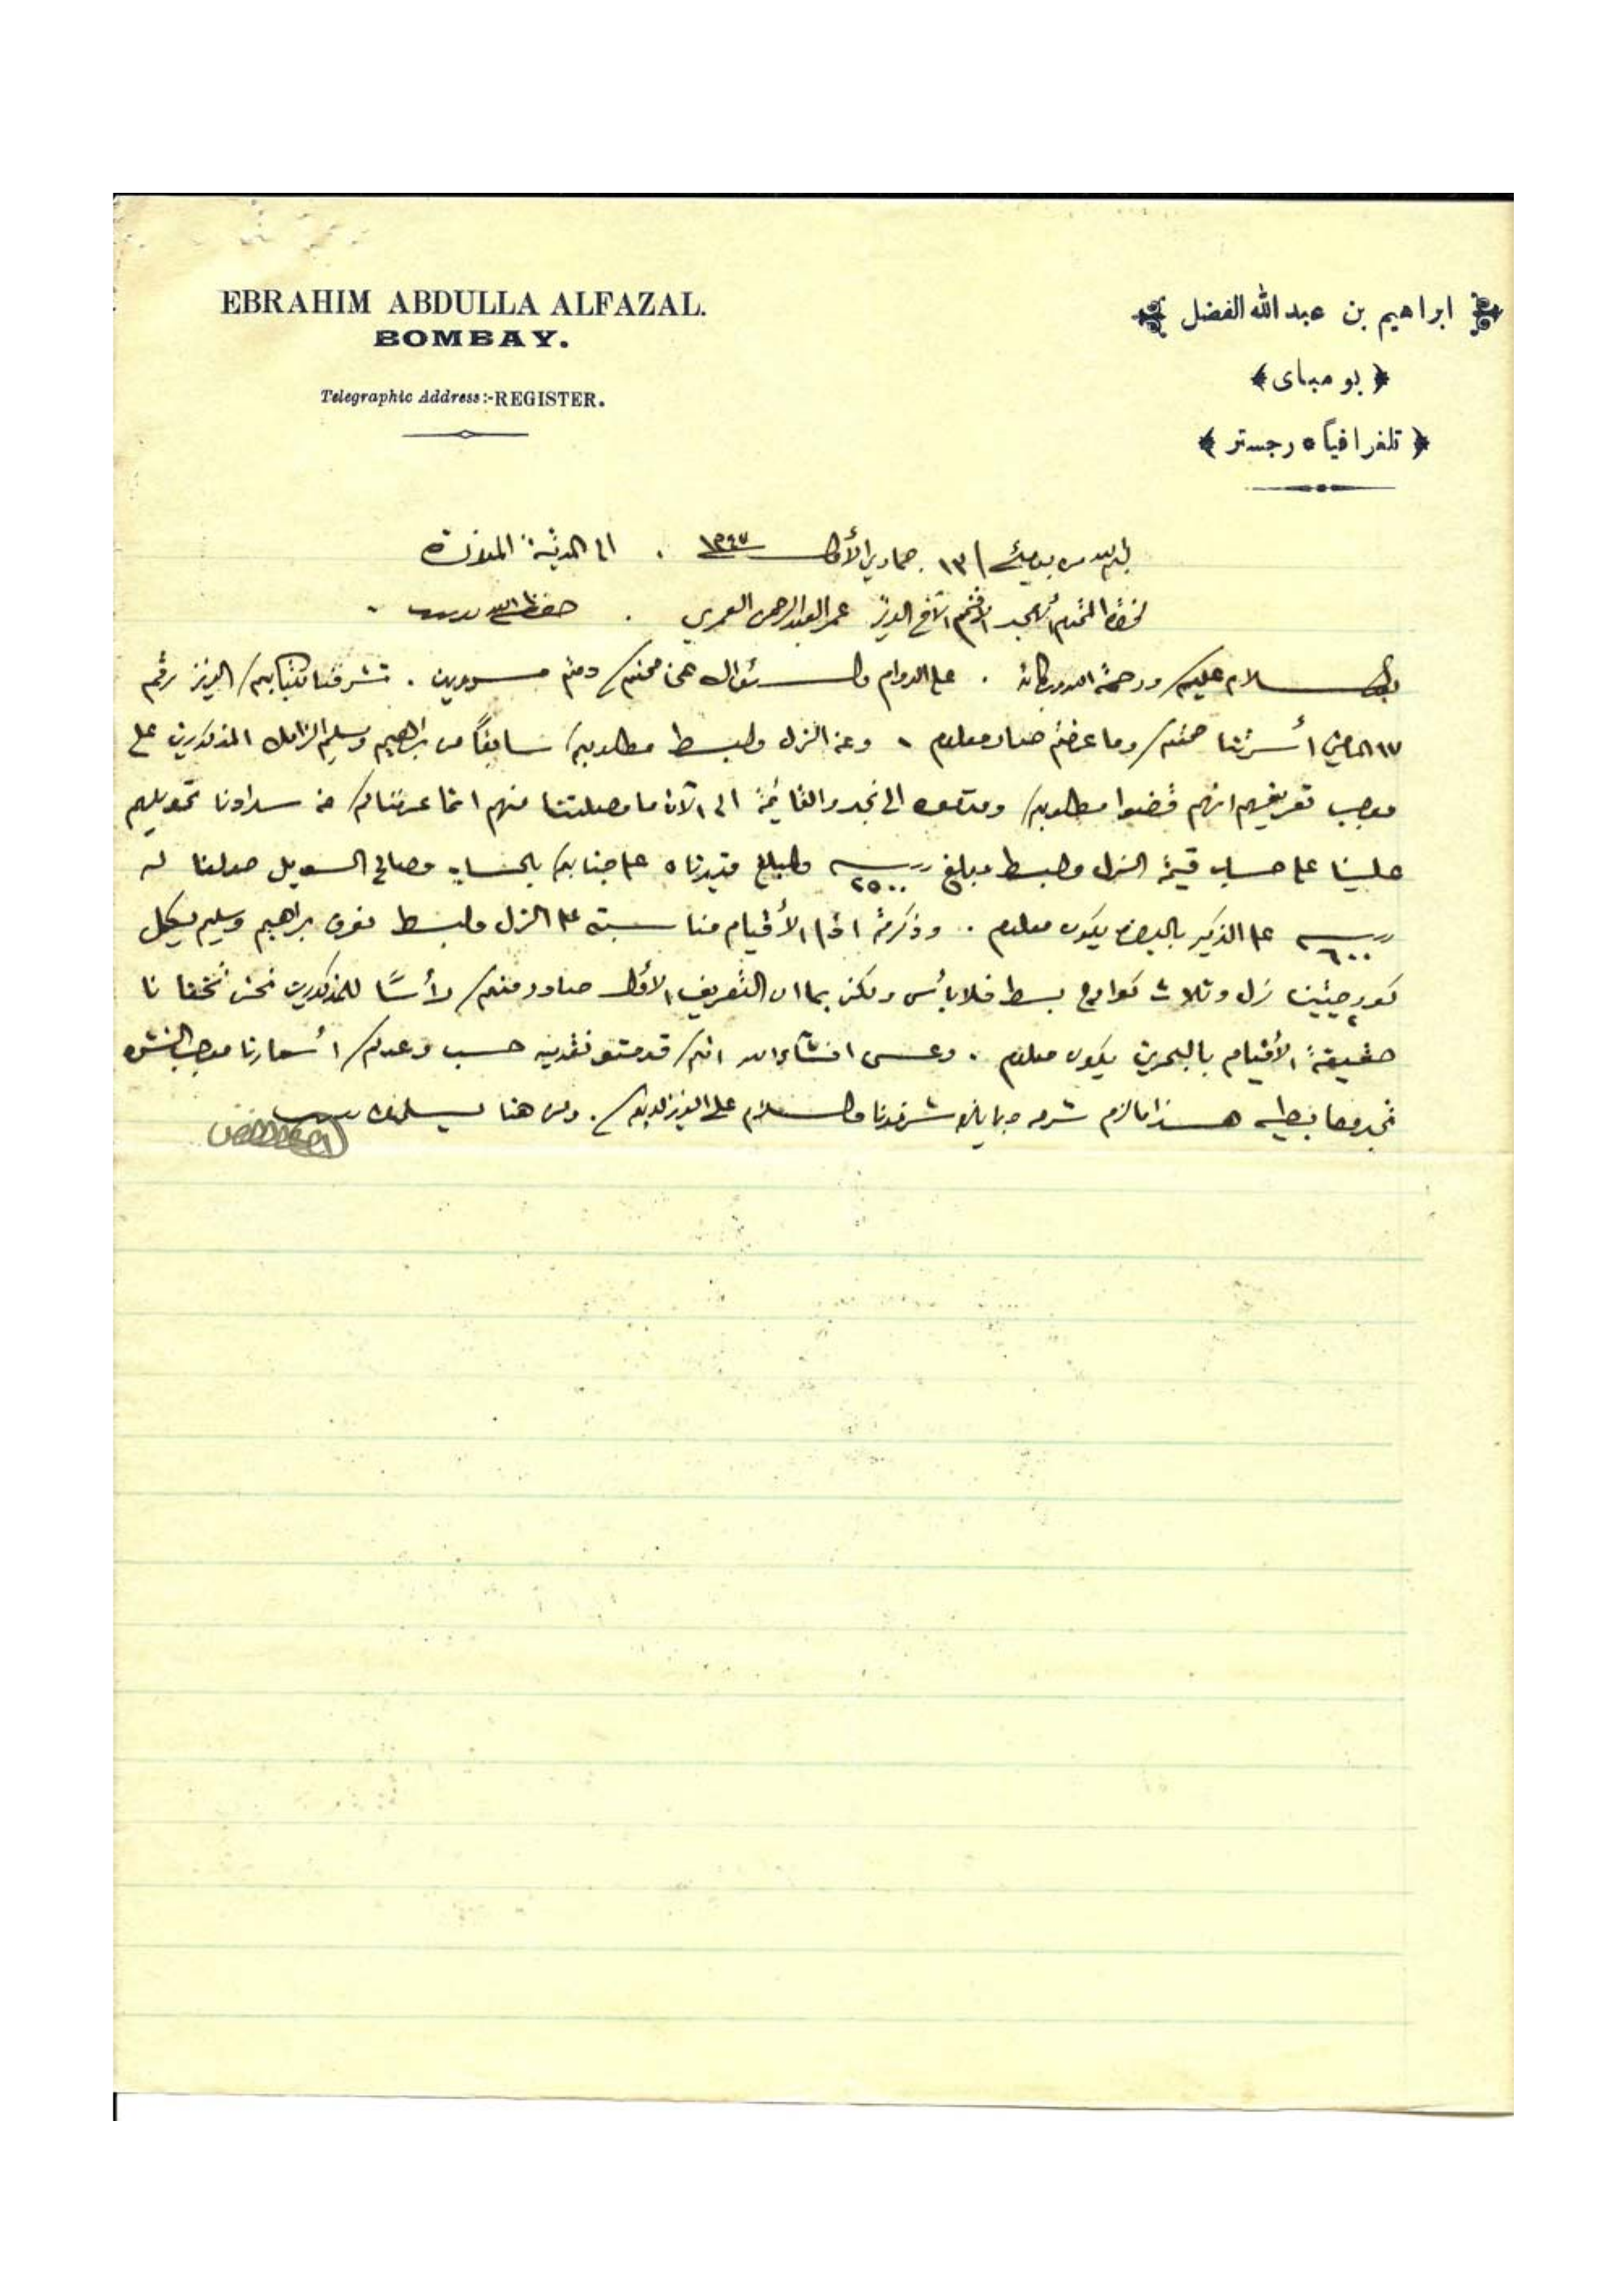 EBRAHIM ABDULLA ALFAZAL.
BOMBAY.
Telegraphic Address:-REGISTER.
ابراهيم بن عبد الله الفضل
﴿ بو مباى ﴾
﴿ تلغرافياً ٥ رجستر ﴾
١٣ جمادي الأول ١٣٤٧ . الى المدينة المنورة
الأمجد الأفخم الأخ العزيز عمر العبد الرحمن العمري . حفظه الله
السلام عليكم ورحمة الله وبركاته . على الدوام والسؤال عن صحتكم دمتم مسرورين . تشرفنا بكتابكم العزيز رقم
١٧ الماضي أسرتنا صحتكم وما عرفتم صار معلوم . وعن الزل والبسط مطلوبكم سابقاً من براهيم وسليم الزامل المذكورين على
موجب تعريفهم انهم قضوا مطلوبكم الى نجد والقائمة الى الآن ما وصلتنا منهم انما عرفناكم عن سدادنا تحويلهم
علينا على حساب قيمة الزل والبسط مبلغ ربية ٢٥٠٠ والمبلغ قيدناه على جنابكم بالحساب وصالح السويل حولنا له
ربية ٦٠٠ على الذكير بالبصرة يكون معلوم . وذكرتم الأقيام مناسبة على الزل والبسط براهيم وسليم بكل
زل وثلاث كوارج بسط فلا بأس ولكن بما ان التعريف الأول صادر منكم رأساً للمذكورين نحن
حقيقة الأقيام بالبحرين يكون معلوم . وعسى انشاء الله انكم حسب وعدكم أسعارنا موجب النشرة
هذا ما لزم شرفونا والسلام على العزيز لديكم . ومن هنا يسلمون